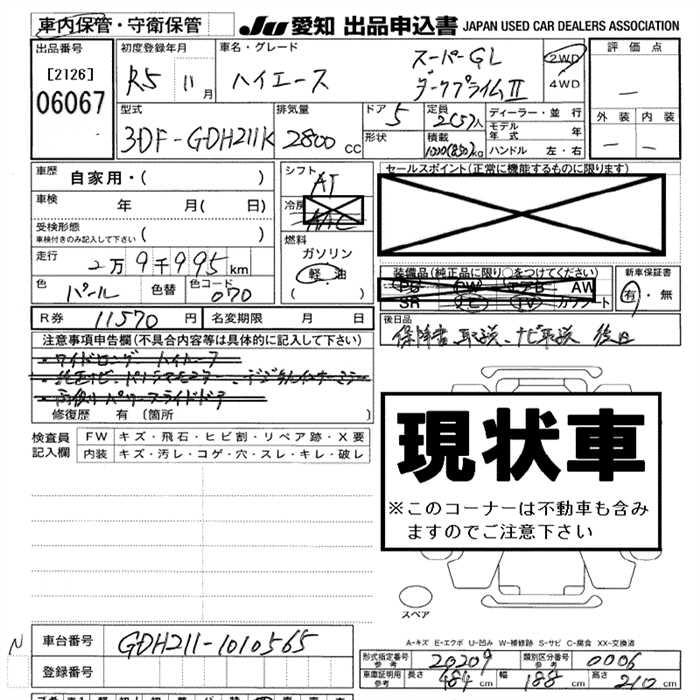 車内保管・守衛保管
JU 愛知 出品申込書 JAPAN USED CAR DEALERS ASSOCIATION
出品番号
[2126]
06067
初度登録年月
R5 11月
車名・グレード
ハイエース
スーパーGL
ダークプライムⅡ
2WD
4WD
評価点
—
外装 内装
— —
型式
3DF-GDH211K
排気量
2800cc
ドア
5
形状
定員
2(5)人
積載
1000(850)kg
ディーラー・並行
モデル年式 年
ハンドル 左・右
車歴
自家用・( )
車検
年 月( 日)
受検形態
車検付きのみ記入して下さい ( )
走行
2万9千995km
色
パール
色替
色コード
070
シフト
AT
冷房
AAC
燃料
ガソリン
軽油
( )
セールスポイント(正常に機能するものに限ります)
装備品(純正品に限り○をつけてください)
PS PW エアB AW
SR ナビ TV カワシート
新車保証書
有・無
R券 11570円
名変期限 月 日
後日品
保障書、取説、ナビ取説 後日
注意事項申告欄(不具合内容等は具体的に記入して下さい)
・ワイドロング ハイルーフ
・純正ナビ、パノラマモニター、デジタルインナーミラー
・両側パワースライドドア
修復歴 有〔箇所 〕
検査員記入欄
FW キズ・飛石・ヒビ割・リペア跡・X要
内装 キズ・汚レ・コゲ・穴・スレ・キレ・破レ
現状車
※このコーナーは不動車も含み
ますのでご注意下さい
スペア
A-キズ E-エクボ U-凹み W-補修跡 S-サビ C-腐食 XX-交換済
N
車台番号 GDH211-1010565
登録番号
形式指定番号 参考 20209
類別区分番号 参考 0006
車庫証明用 参考 長さ 484cm 幅 188cm 高さ 210cm